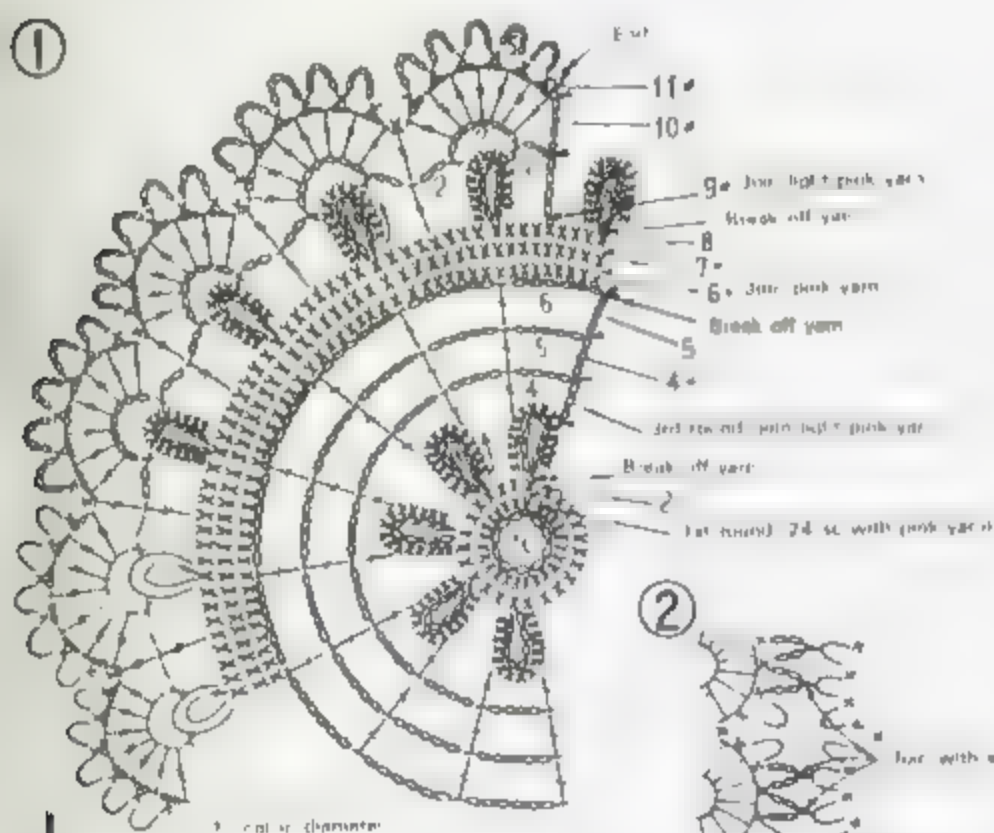 1
5
11
10
2
2
9 Join light pink yarn
Break off yarn
8
7
6 Join pink yarn
6
Break off yarn
5
5
4
4
3rd round join light pink yarn
Break off yarn
2
1st round 24 sc with pink yarn
2
Join with
diameter